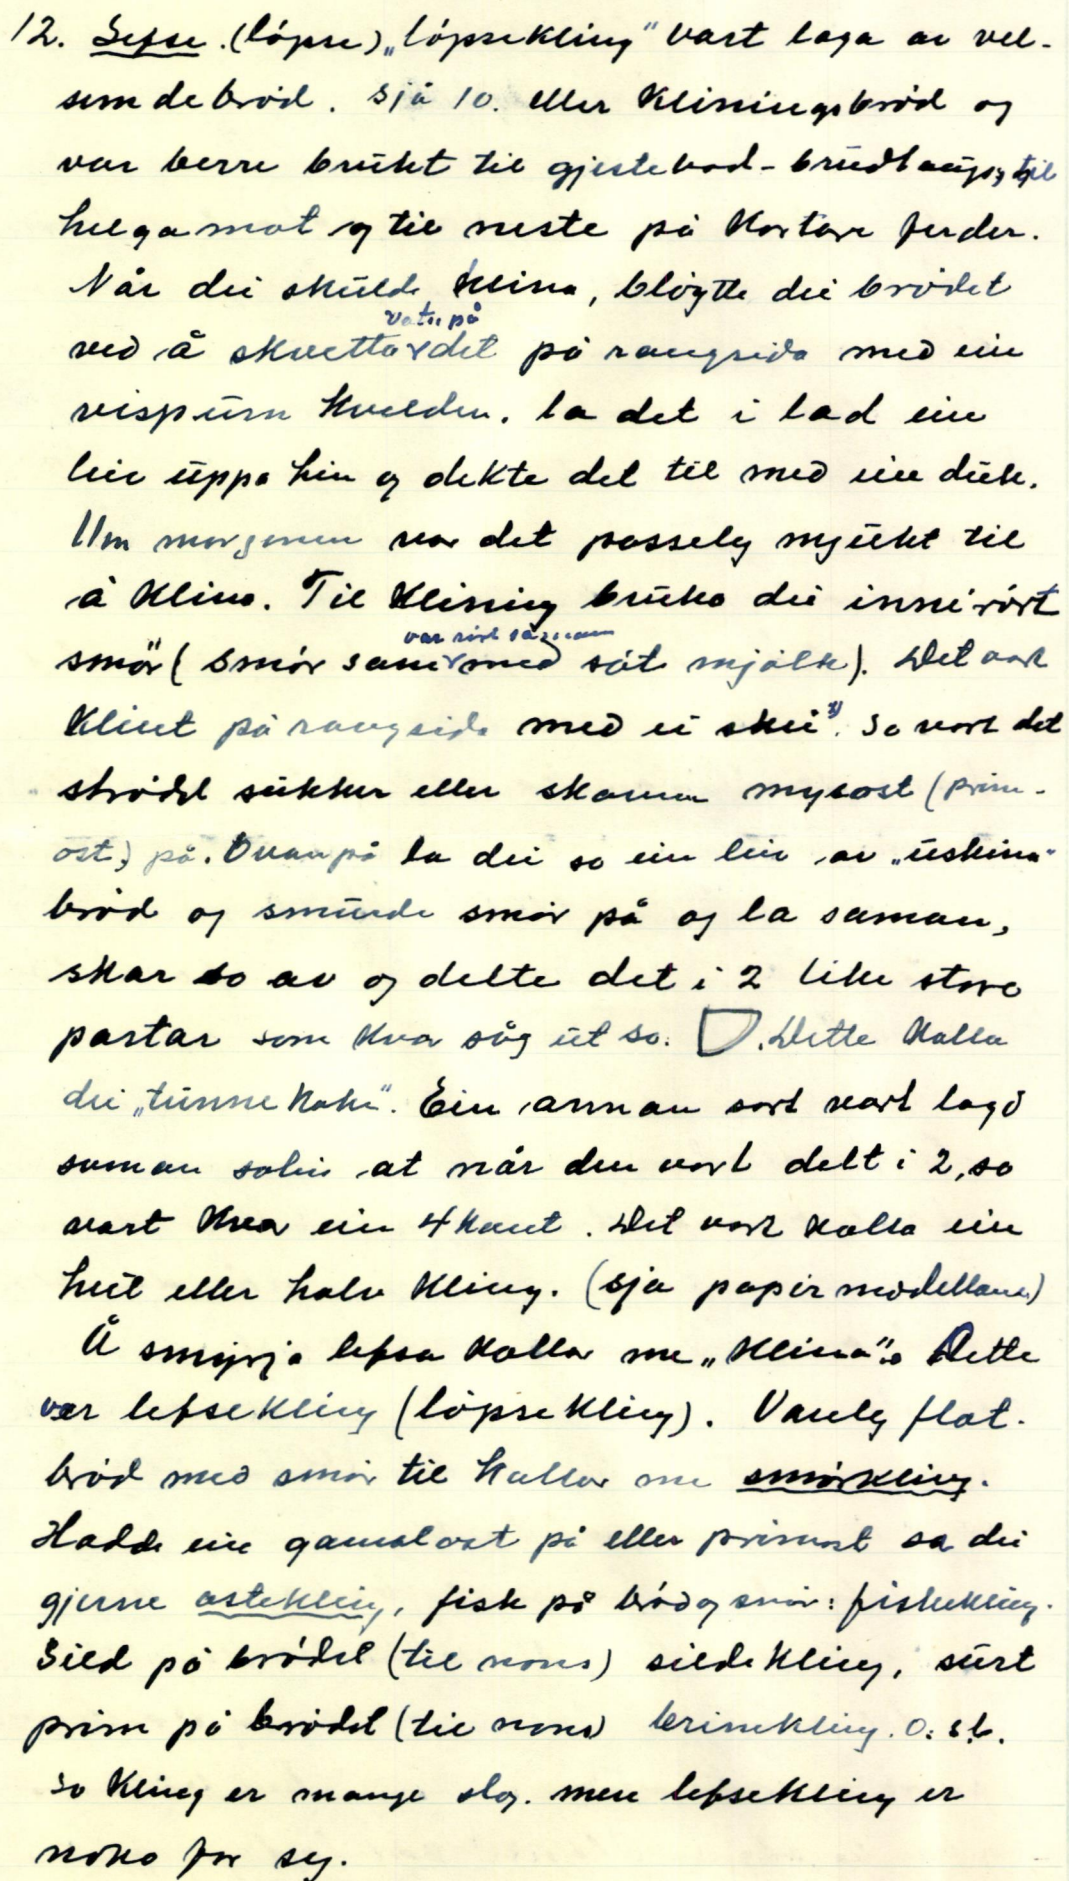 12. Lefse. (löpse) „löpsekling" vart laga av vel-
semdebröd. sjå 10. eller Kliningsbröd og
var berre brukt til gjestebod - brudlaups, til
helgamat og til neste på kortare ferder.
Når dei skulde klina, bløytte dei brødet
vatn på
ved å skvetta det på rangsida med ein
visp um kvelden. la det i lad ein
leiv uppå hin og dekte det til med ein duk.
Um morgonen var det passeleg mjukt til
å klina. Til klining bruka dei innirört
var rört saman
smör (smör sam med söt mjölk). Det vart
klint på rangsida med ei skei 1). So vart det
strödd sukker eller skoren mysost (prim-
ost) på. Ovanpå la dei so ein leiv av „uskina"
bröd og smurde smör på og la saman,
skar so av og delte det i 2 like store
partar som kva såg ut so: . Dette kalla
dei „tunnekake". Ein annan sort vart lagd
saman solein at når den vart delt i 2, so
vart kva ein 4kant. Det vart kalla ein
heil eller halv kling. (sjå papirmodellane)
Å smyrja lefsa kallar me „klina". Dette
var lefsekling (löpsekling). Vanleg flat-
bröd med smör til kallar me smörkling.
Hadde ein gamalost på eller primost sa dei
gjerne ostekling, fisk på bröd og smör: fiskekling.
Sild på brödet (til nons) sildekling, surt
prim på brödet (til nons) brimekling. o.s.b.
So kling er mange slag. men lefsekling er
noko for seg.